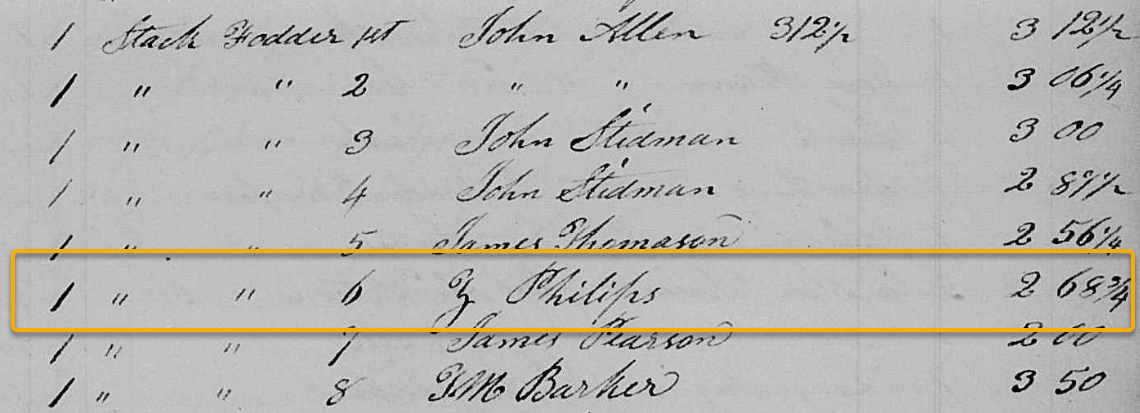 1 Stack Fodder 1st John Allen 312½ 3 12½
1 " " 2 " " 3 06¼
1 " " 3 John Stidman 3 00
1 " " 4 John Stidman 2 87½
1 " " 5 James Thomason 2 56¼
1 " " 6 Z Philips 2 68¾
1 " " 7 James Pearson 2 00
1 " " 8 T M Barker 3 50